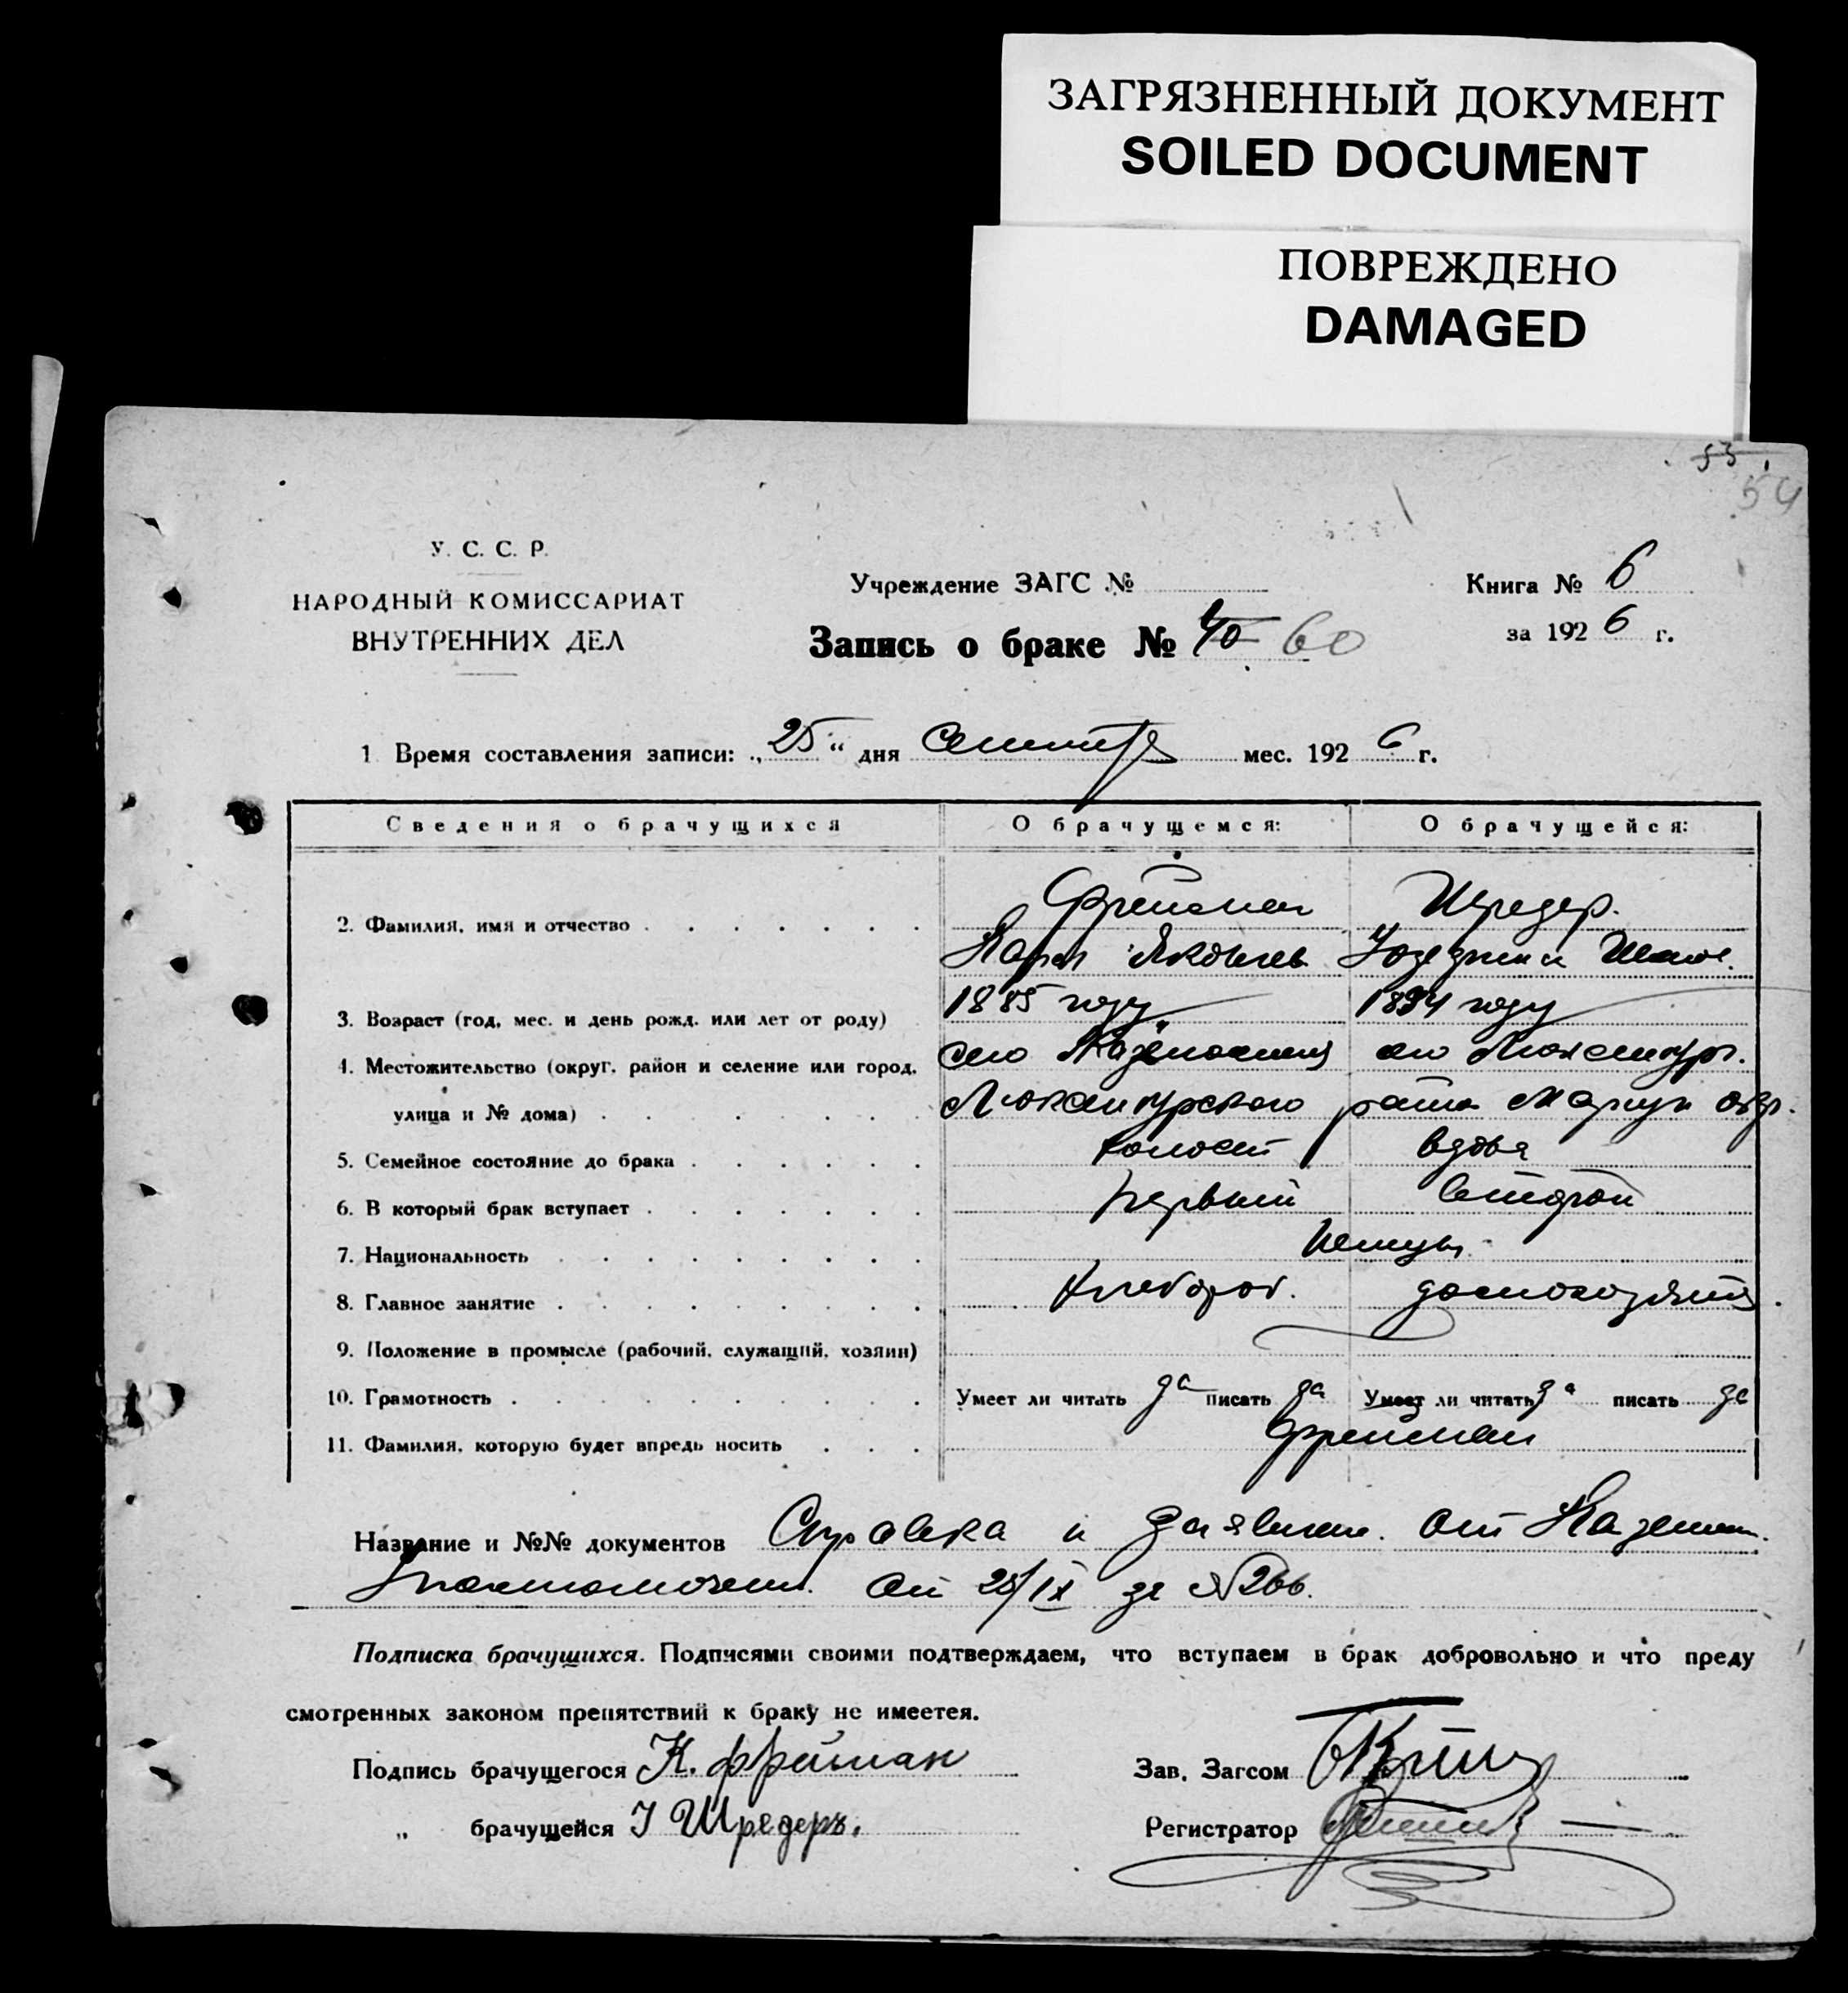 ЗАГРЯЗНЕННЫЙ ДОКУМЕНТ
SOILED DOCUMENT
ПОВРЕЖДЕНО
DAMAGED
53
54
У. С. С. Р.
НАРОДНЫЙ КОМИССАРИАТ
ВНУТРЕННИХ ДЕЛ
Учреждение ЗАГС №
Книга № 6
Запись о браке № 40 60
за 192 6 г.
1 Время составления записи: „ 25 “ дня мес. 192 6 г.
Сведения о брачущихся О брачущемся: О брачущейся:
Фрейман Шредер.
2. Фамилия, имя и отчество
Карл Яковлев
1885 году 1894 году
3. Возраст (год, мес. и день рожд. или лет от роду)
4. Местожительство (округ, район и селение или город, село
улица и № дома) Люксембургского района Мариуп окр.
5. Семейное состояние до брака холост вдова
6. В который брак вступает первый второй
7. Национальность Немцы
8. Главное занятие хлебороб.
9. Положение в промысле (рабочий, служащий, хозяин)
10. Грамотность Умеет ли читать да писать да Умеет ли читать да писать да
11. Фамилия, которую будет впредь носить Фрейман
Название и №№ документов Справка и заявлен. от
от 25/IX за № 266.
Подписка брачущихся. Подписями своими подтверждаем, что вступаем в брак добровольно и что преду
смотренных законом препятствий к браку не имеетея.
Подпись брачущегося К. Фрейман Зав. Загсом
„ брачущейся I Шредеръ. Регистратор